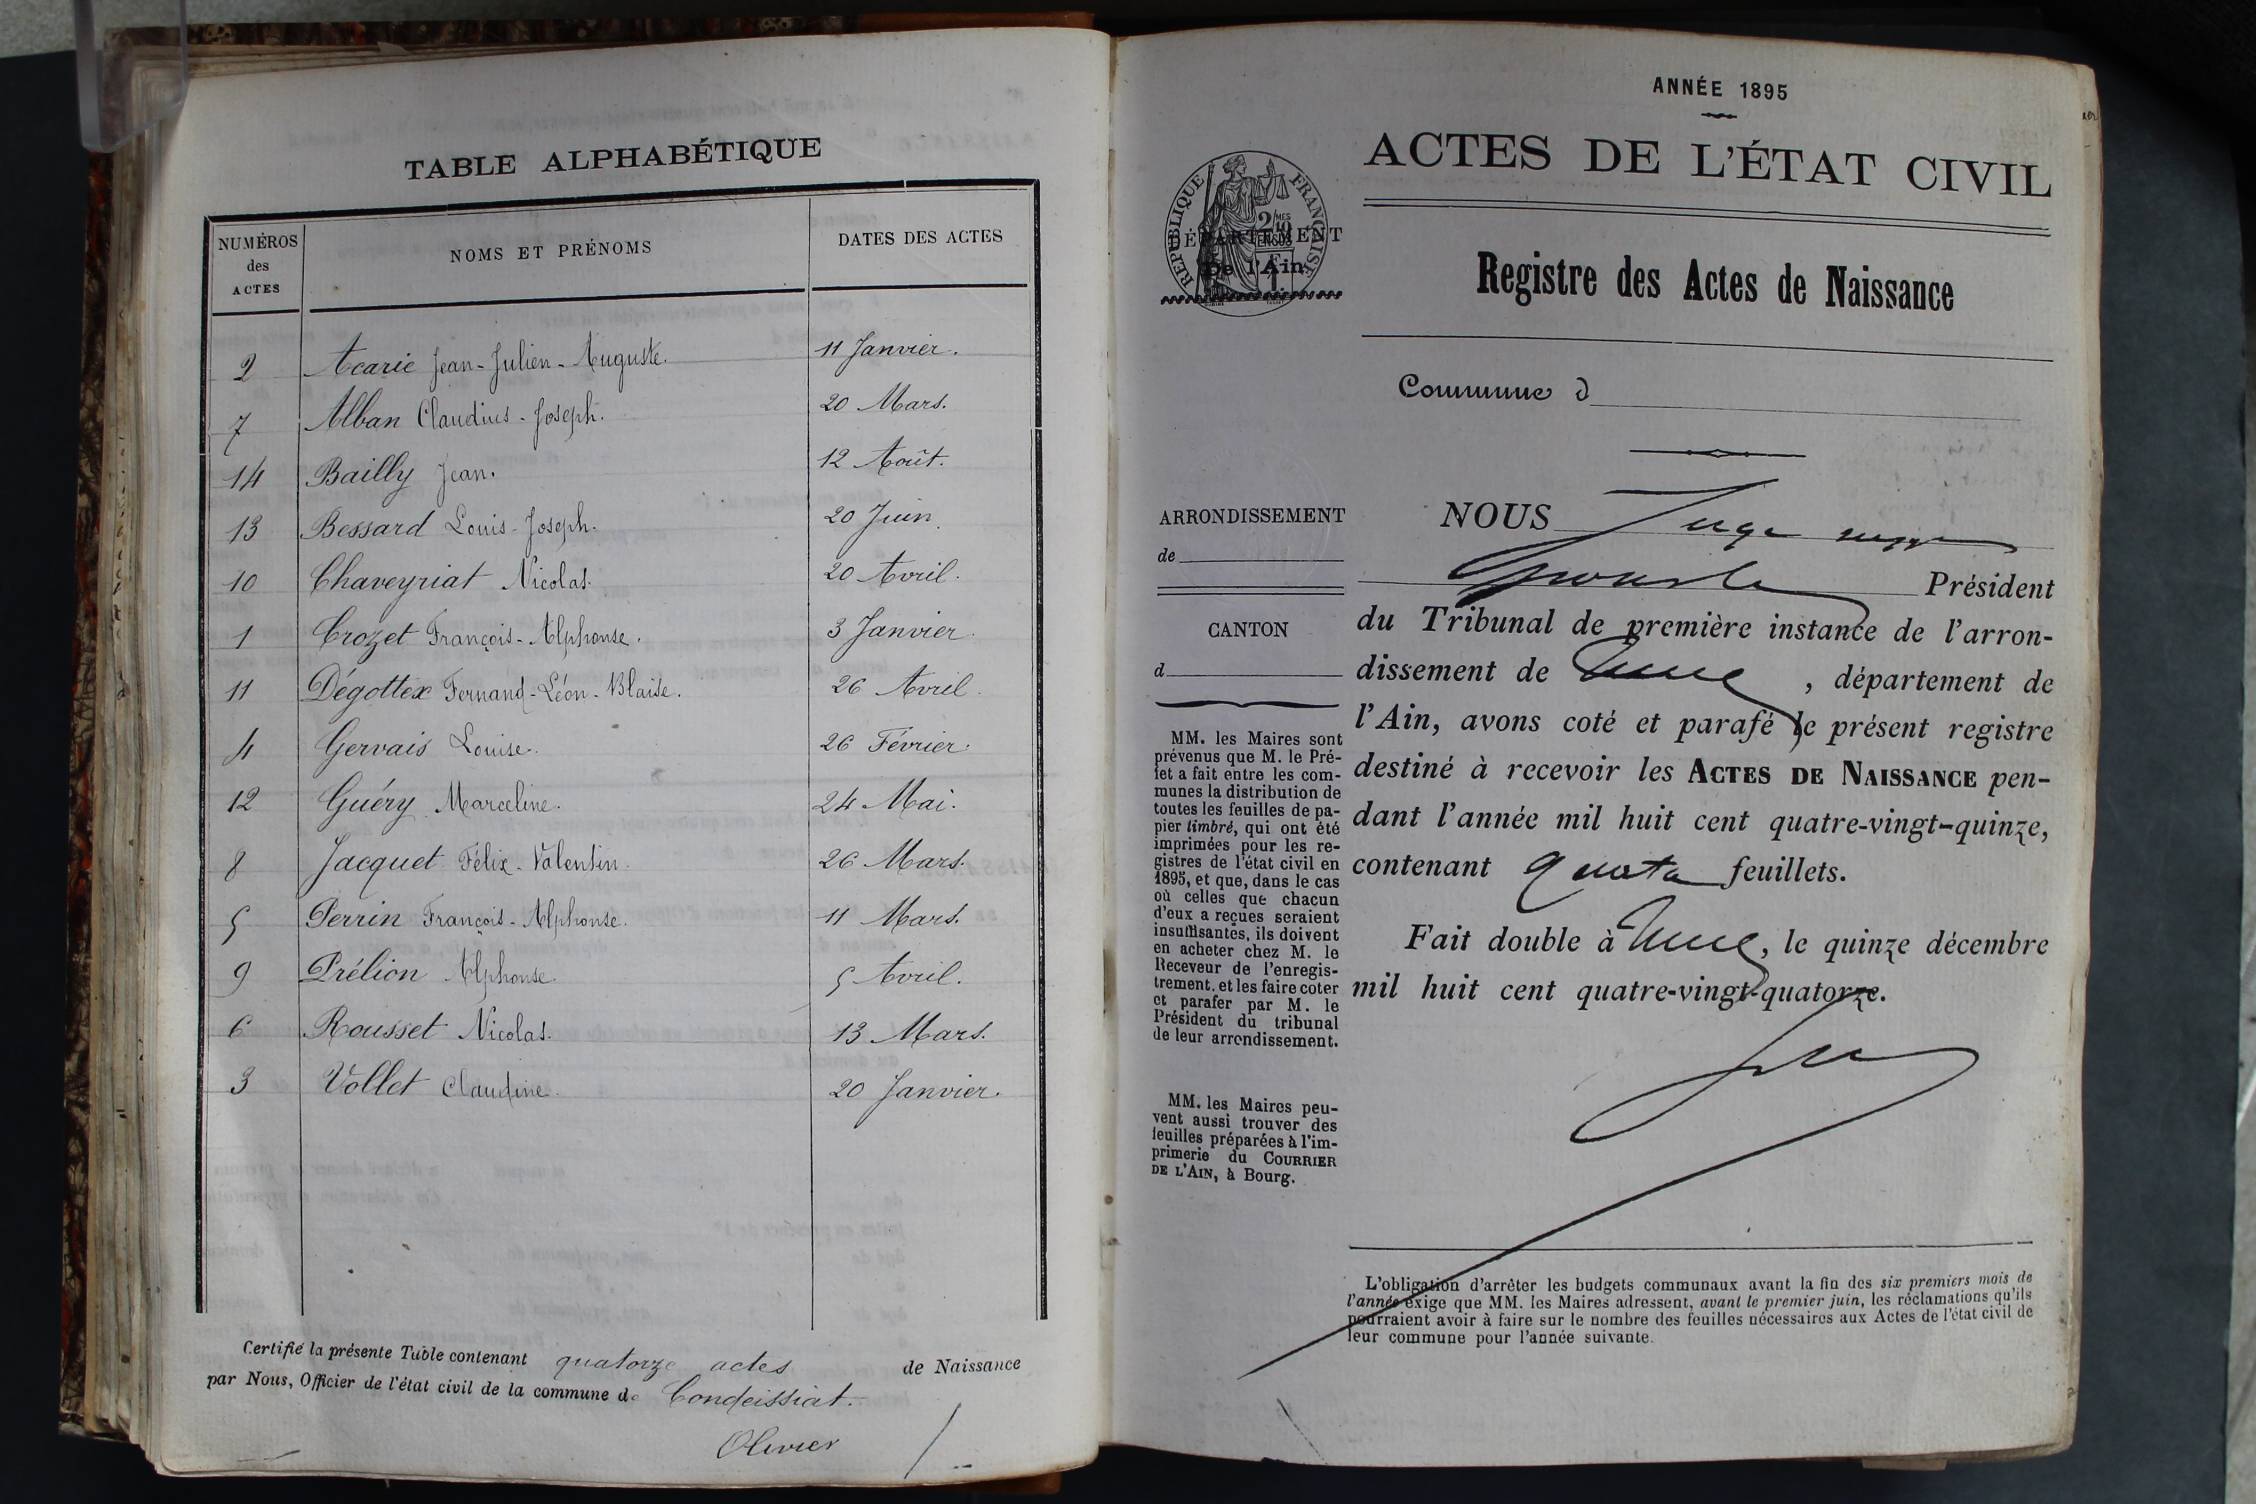 TABLE ALPHABÉTIQUE
NUMÉROS des ACTES
NOMS ET PRÉNOMS
DATES DES ACTES
2 Acarie Jean-Julien-Auguste. 11 Janvier.
7 Alban Claudius-Joseph. 20 Mars.
14 Bailly Jean. 12 Août.
13 Bessard Louis-Joseph. 20 Juin.
10 Chaveyriat Nicolas. 20 Avril.
1 Crozet François-Alphonse. 3 Janvier.
11 Dégottex Fernand-Léon-Blaise. 26 Avril.
4 Gervais Louise. 26 Février.
12 Guéry Marceline. 24 Mai.
8 Jacquet Félix-Valentin. 26 Mars.
5 Perrin François-Alphonse. 11 Mars.
9 Prélion Alphonse. 5 Avril.
6 Rousset Nicolas. 13 Mars.
3 Vollet Claudine. 20 Janvier.
Certifié la présente Table contenant quatorze actes de Naissance
par Nous, Officier de l'état civil de la commune de Condeissiat.
Olivier
ANNÉE 1895
ACTES DE L'ÉTAT CIVIL
RÉPUBLIQUE FRANÇAISE
2/10 MES
EN SUS
DÉPARTEMENT
De l'Ain
Registre des Actes de Naissance
Commune d
ARRONDISSEMENT
de
CANTON
d
MM. les Maires sont
prévenus que M. le Pré-
fet a fait entre les com-
munes la distribution de
toutes les feuilles de pa-
pier timbré, qui ont été
imprimées pour les re-
gistres de l'état civil en
1895, et que, dans le cas
où celles que chacun
d'eux a reçues seraient
insuffisantes, ils doivent
en acheter chez M. le
Receveur de l'enregis-
trement, et les faire coter
et parafer par M. le
Président du tribunal
de leur arrondissement.
MM. les Maires peu-
vent aussi trouver des
feuilles préparées à l'im-
primerie du COURRIER
DE L'AIN, à Bourg.
NOUS Juge
Président
du Tribunal de première instance de l'arron-
dissement de , département de
l'Ain, avons coté et parafé le présent registre
destiné à recevoir les ACTES DE NAISSANCE pen-
dant l'année mil huit cent quatre-vingt-quinze,
contenant feuillets.
Fait double à , le quinze décembre
mil huit cent quatre-vingt-quatorze.
L'obligation d'arrêter les budgets communaux avant la fin des six premiers mois de
l'année exige que MM. les Maires adressent, avant le premier juin, les réclamations qu'ils
pourraient avoir à faire sur le nombre des feuilles nécessaires aux Actes de l'état civil de
leur commune pour l'année suivante.